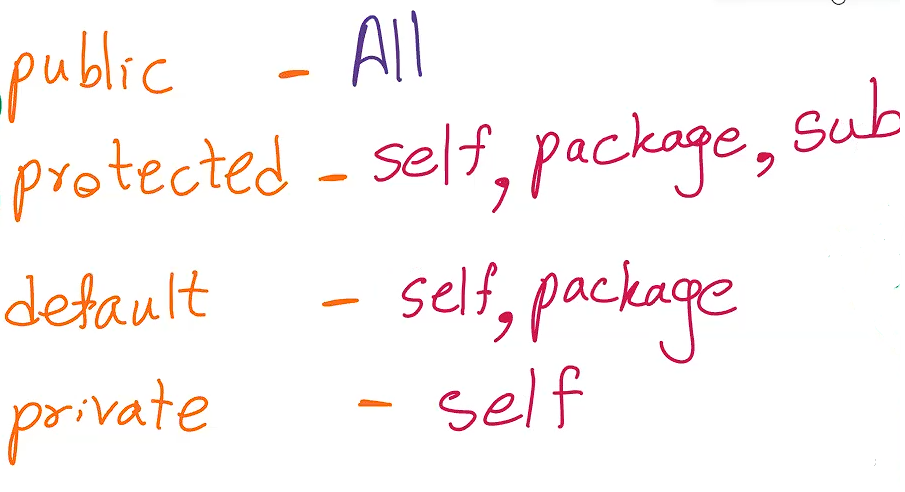 public - All
protected - self, package, sub
default - self, package
private - self